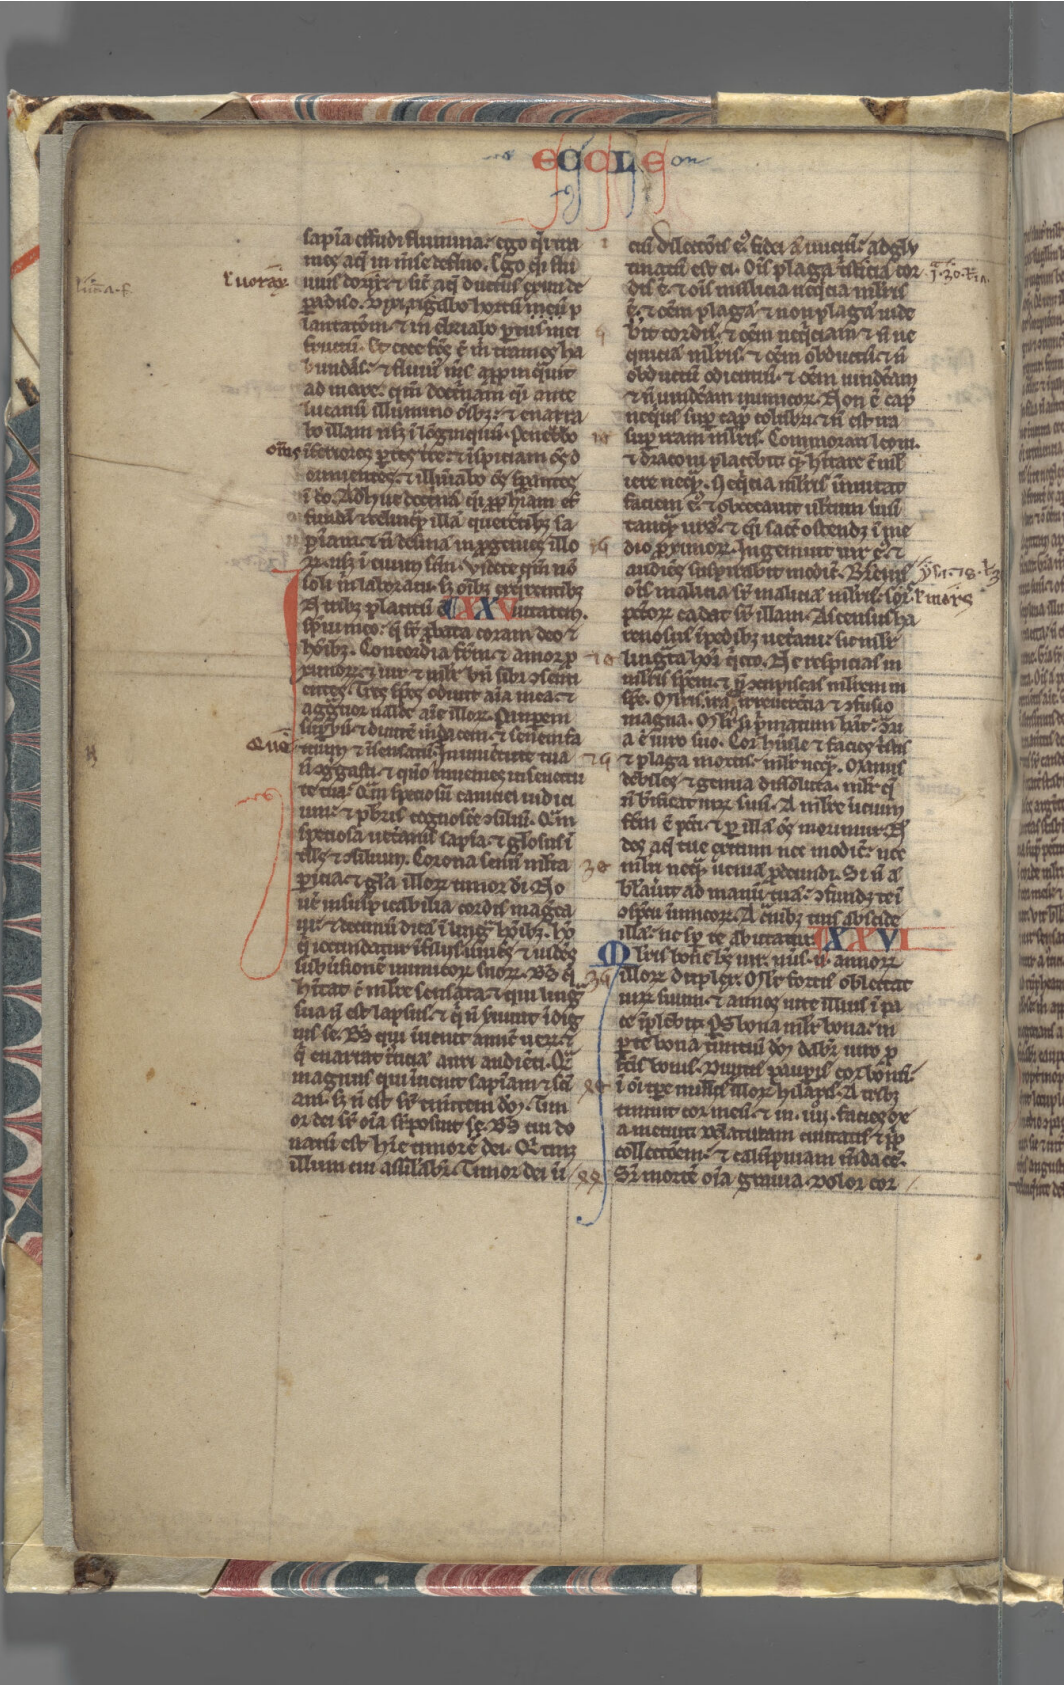 ECCLE
sapīa effudi flumina. ego q̄i tra
mes aq̄ in mēse defluo. Ego q̄i flu
uius dorix. ⁊ sic̄ aq̄ ductus exiui de
paradiso. Dixi. rigabo hortū meū p
lantatōm. ⁊ inebriabo p̄tus mei
fructū. Et ecce
bundās. ⁊ fluuiꝰ m̄s app̄inq̄uit
ad mare. q̄m doctīnam q̄i ante
lucanū illumino oībꝫ. ⁊ enarra
bo illam usqꝫ ī lōginquū. Penetbo
īferiores ptes tre. ⁊ īspiciam oēs d
ormientes. ⁊ illūinabo oēs sperantes
ī do. Adhuc doctīnā q̄i ꝓphiam ef
fundā ⁊ relinqm̄ illā querētibꝫ sa
pīam. ⁊ n̄ desinā in ꝓgenies illo
rum. usqꝫ ī euum scm̄. Videte qm̄ nō
soli m̄ laboraui. sꝫ oībꝫ exqrentibꝫ
N tribꝫ placitū XXV ueritatem.
spūi meo. q̄ st̄ ꝓbata coram deo ⁊
hoībꝫ. Concordia frm̄. ⁊ amor p
ximorum. ⁊ uir ⁊ mulr bn̄ sibi ꝯsen
cientes. Tres spēs odiuit aīa mea. ⁊
aggauor ualde aīe illorum. Paupem
supbū. ⁊ diuitē mdacem. ⁊ senem fa
tuum ⁊ īsensatū. In iuuētute tua
n̄ ᵹgasti. ⁊ quō inuenies in senectu
te tua. Qm̄ speciosū canitiei iudici
um. ⁊ p̄bris cognoscē ꝯsiliū. Qm̄
speciosa ueteranis sapīa. ⁊ gl̄osus ī
telłs ⁊ ꝯsilium. Corona senū multa
picia. ⁊ gl̄a illorum timor dī. No
uē insuspicabilia cordis magca
ui. ⁊ decimū dicā ī lingᵃ hoībꝫ. hō
q̄ iocundatur ī filiis. uiuēs ⁊ uidēs
subūsionē inimicorum suorum. Bs q̄
hītat cū mulie sensata. ⁊ qui lingᵃ
sua n̄ est lapsus. ⁊ q̄ n̄ seruiuit īdig
nis se. Bs qui īuenit amicū uerum. ⁊
q̄ enarrat iusticiā auri audiēti. Qm̄
magnus qui īuenit sapīam ⁊ sci
am. sꝫ n̄ est sr̄ timentem dm̄. Tim
or dei sr̄ oīa se sposuit. Bs cui do
natū est habere timorē dei. Qi tenꝫ
illum cui assilabr̄. Timor dei ī
cuī dilectōis eiꝰ. fidei ā iniciū. adglu
tinatū est ei. Oīs plaga tristicia cor
dis ē. ⁊ oīs malicia neqicia mulris
ē. ⁊ oēm plagā ⁊ non plagā uide
bit cordis. ⁊ oēm neqiciam ⁊ n̄ ne
quiciā mulris. ⁊ oēm obductū ⁊ n̄
obductū odientiū. ⁊ oēm uindcam
⁊ n̄ uindcam inimicorum. Non ē capᵈ
neqius sup capᵈ colubri. ⁊ n̄ est ira
sup iram mulris. Commorari leoni
⁊ draconi placebit. q̄ hītare cū mul
iere neqᵃ. Neqicia mulris īmutat
faciem eiꝰ. ⁊ obcecauit uultum suū
tanqᵃ ursꝰ. ⁊ q̄i saccū ostendꝫ ī me
dio ꝓximorum. Ingemuit uir eiꝰ. ⁊
audiēs suspirabit modicū. Breuis
oīs malicia sr̄ maliciā mulris. sors
pctorum cadat sr̄ illam. Ascensus ha
renosus ī pedibꝫ ueterani. sic mulr
linguata hoī qeto. Ne respicias in
mulris spēm. ⁊ n̄ ꝯcupiscas mulrem in
spē. Mulris ira. irreuerētia ⁊ ꝯfusio
magna. Mulr si pmatum hāt. ꝯtri
a ē uiro suo. Cor humile ⁊ facies tstis
⁊ plaga mortis. mulr neqᵃ. Manus
debiles ⁊ genua dissoluta. mulr q̄
n̄ bīficat uirum suū. A muliere īcium
fcm̄ ē pcti. ⁊ p illā oēs morimur. Nō
des aq̄ tue exitum nec modicū. nec
mulri neqᵃ ueniā ꝓdeundi. Si n̄ ā
blauit ad manū tuā. ꝯfundꝫ te ī
ꝯspcū īimicorum. A carnibꝫ tuis abscide
illā. ne sp te abutatur. XXVI
Mulris bone bs uir. nūs ꝉ. annorum
illorum duplex. Mulr fortis oblectat
uirum suum. ⁊ annos uite illius ī pa
ce īplebit. Ps bona mulr bona. in
pte bona timentiū dm̄ dabr̄ uiro p
factis bonis. Diuitis paupis cor bonū.
ī oī tpe uultus illorum hilaris. A tribꝫ
timuit cor meū. ⁊ in .iiii. facies me
a metuit. Delaturam ciuitatis ⁊
collectōem. ⁊ calūpniam mdacē.
Sr̄ mortē oīa grauia. Dolor cor